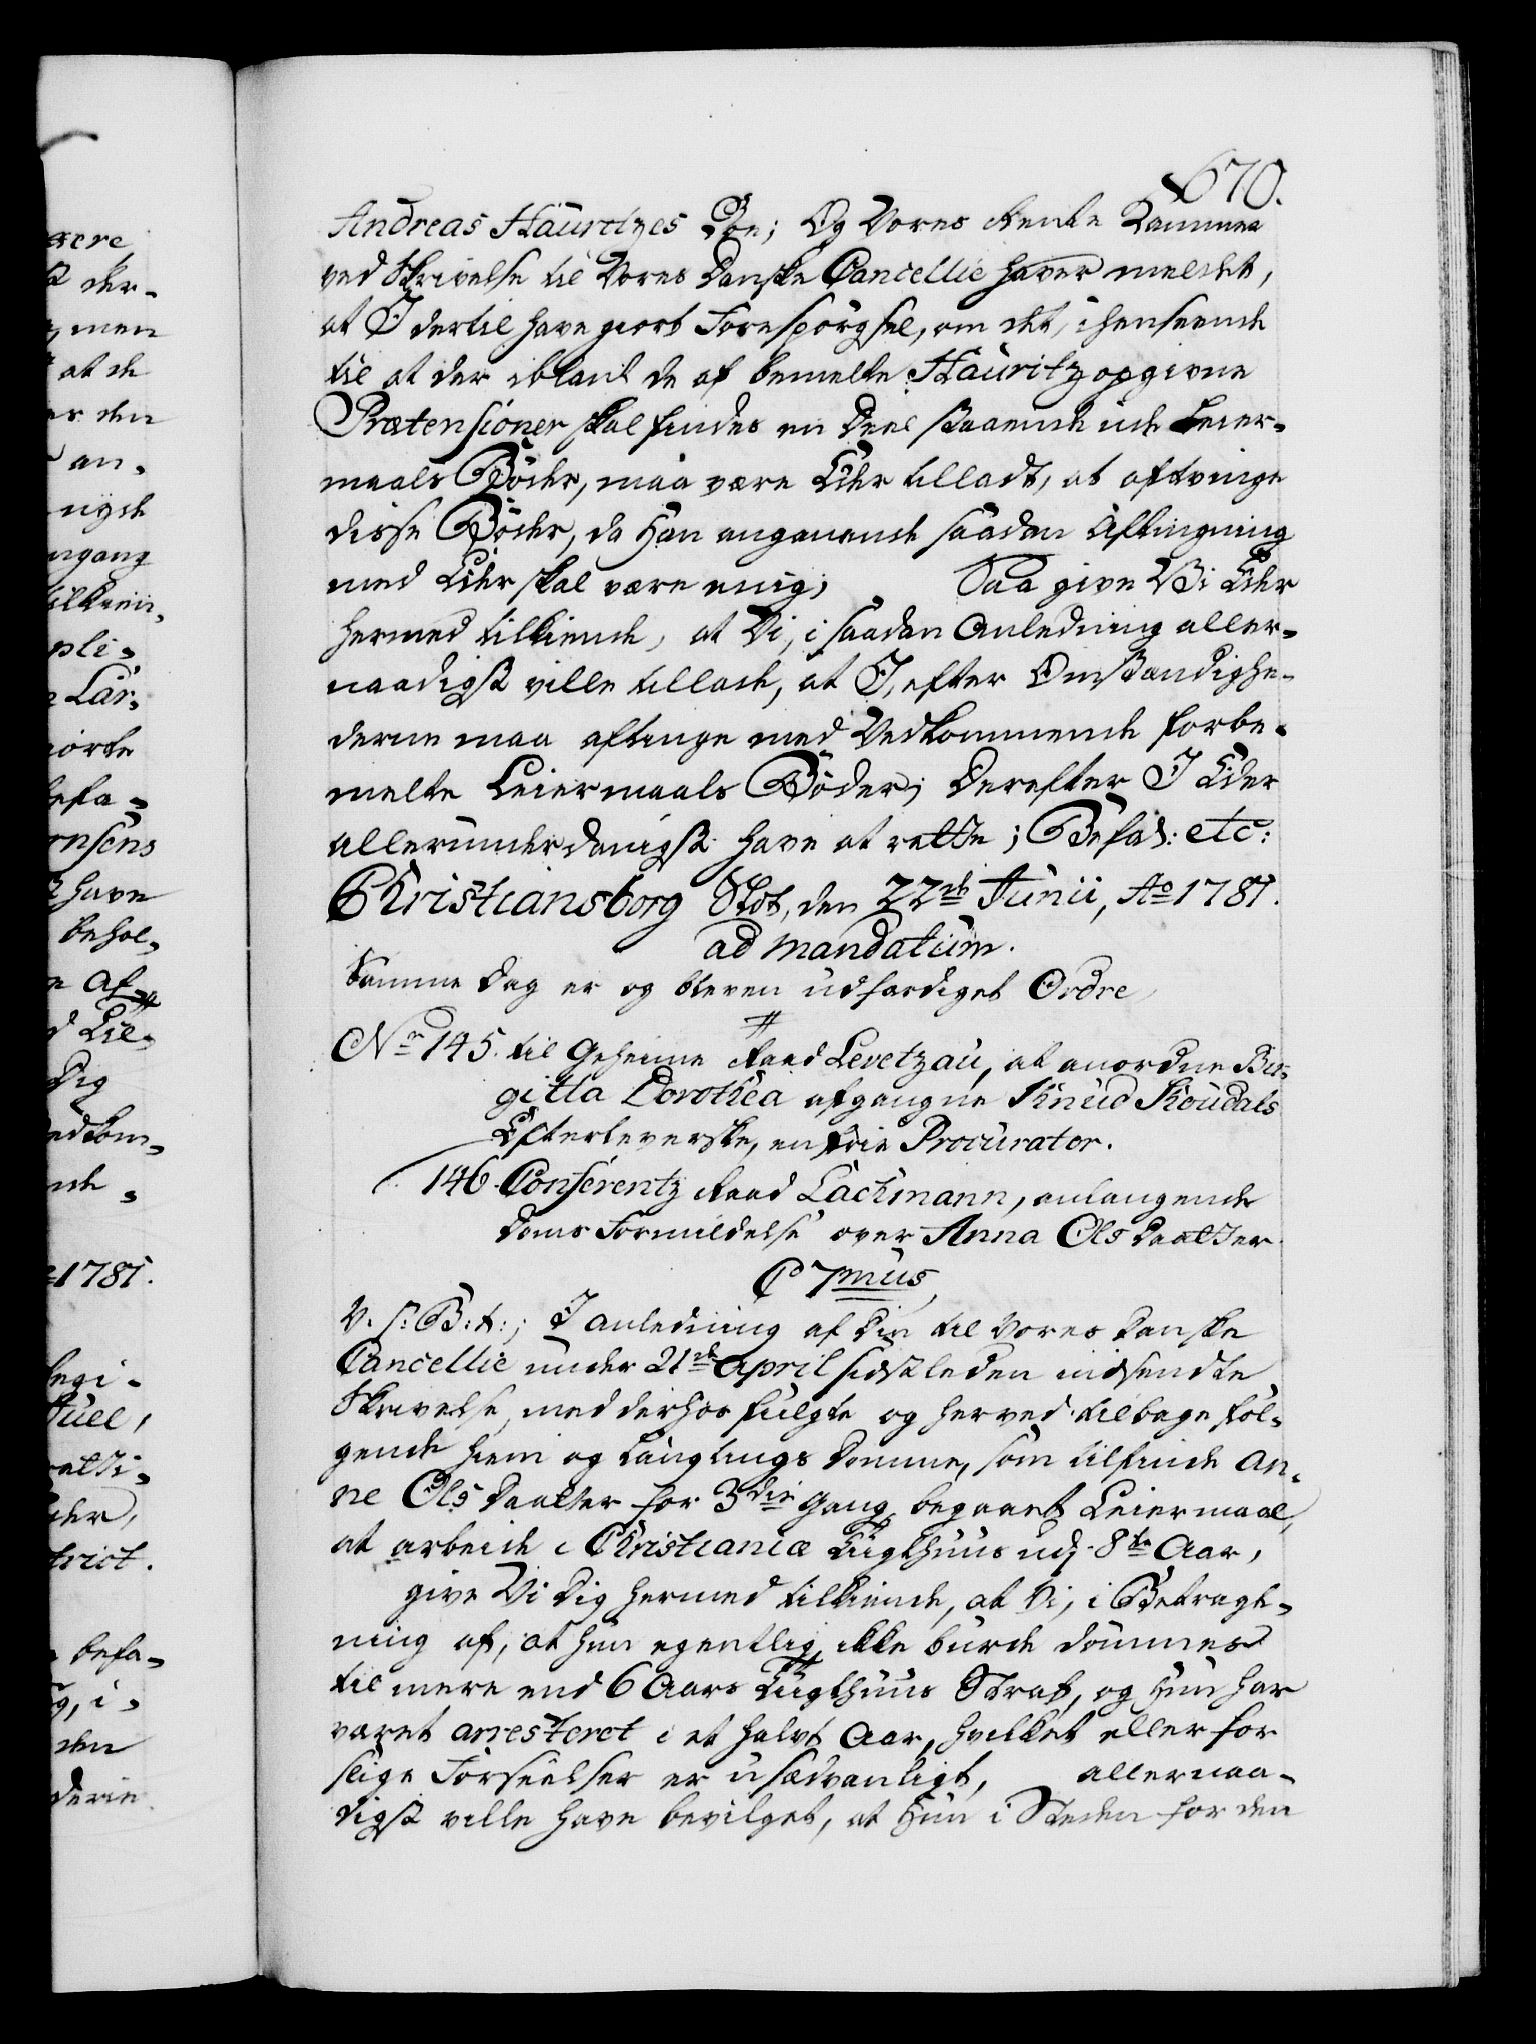 670.
Andreas Hauritzes Boe; Og Vores Rente Kammer
ved Skrivelse til Vores Danske Cancellie haver meldet,
at I dertil have giort Forespørgsel, om det, i henseende
til at der iblant de af bemelte Hauritz opgivne
Prætensioner skal findes en Deel staaende ude Leier-
maals Bøder, maa være Eder tilladt, at aftinge
disse Bøder, da han angaaende saadan Aftingning
med Eder skal være enig; Saa give Vi Eder
hermed tilkiende, at Vi, i saadan Anledning aller-
naadigst ville tillade, at I, efter Omstændighe-
derne maa aftinge med Vedkommende forbe-
melte Leiermaals Bøder; Derefter I Eder
allerunderdanigst have at rette; Befal: etc:
Christiansborg Slot, den 22de Junii, Ao 1781.
ad mandatum.
Samme Dag er og bleven udfærdiget Ordre
Nr 145. til Geheime Raad Levetzau, at anordne Bir-
gitta Dorothea afgangne Knud Koudals
Efterleverske, en frie Procurator.
146. Conferentz Raad Lachmann, anlangende
Doms Formildelse over Anna Ols Daatter.
C 7mus
V. s: G: t:; I Anledning af Din til Vores Danske
Cancellie under 21de April sidstleden indsendte
Skrivelse, med derhos fulgte og herved tilbage føl-
gende Hiem og Laugtings Domme, som tilfinde An-
ne Ols Daatter for 3die Gang begaaet Leiermaal,
at arbeide i Christianiæ Tugthuus udj 8te Aar,
give Vi Dig hermed tilkiende, at Vi, i Betragt-
ning af, at hun egentlig ikke burde dømmes
til mere end 6 Aars Tugthuus Straf, og hun har
været arresteret i et halvt Aar, hvilket eller for
slige Forseelser er usædvanligt, allernaa-
digst ville have bevilget, at hun i Steden for den